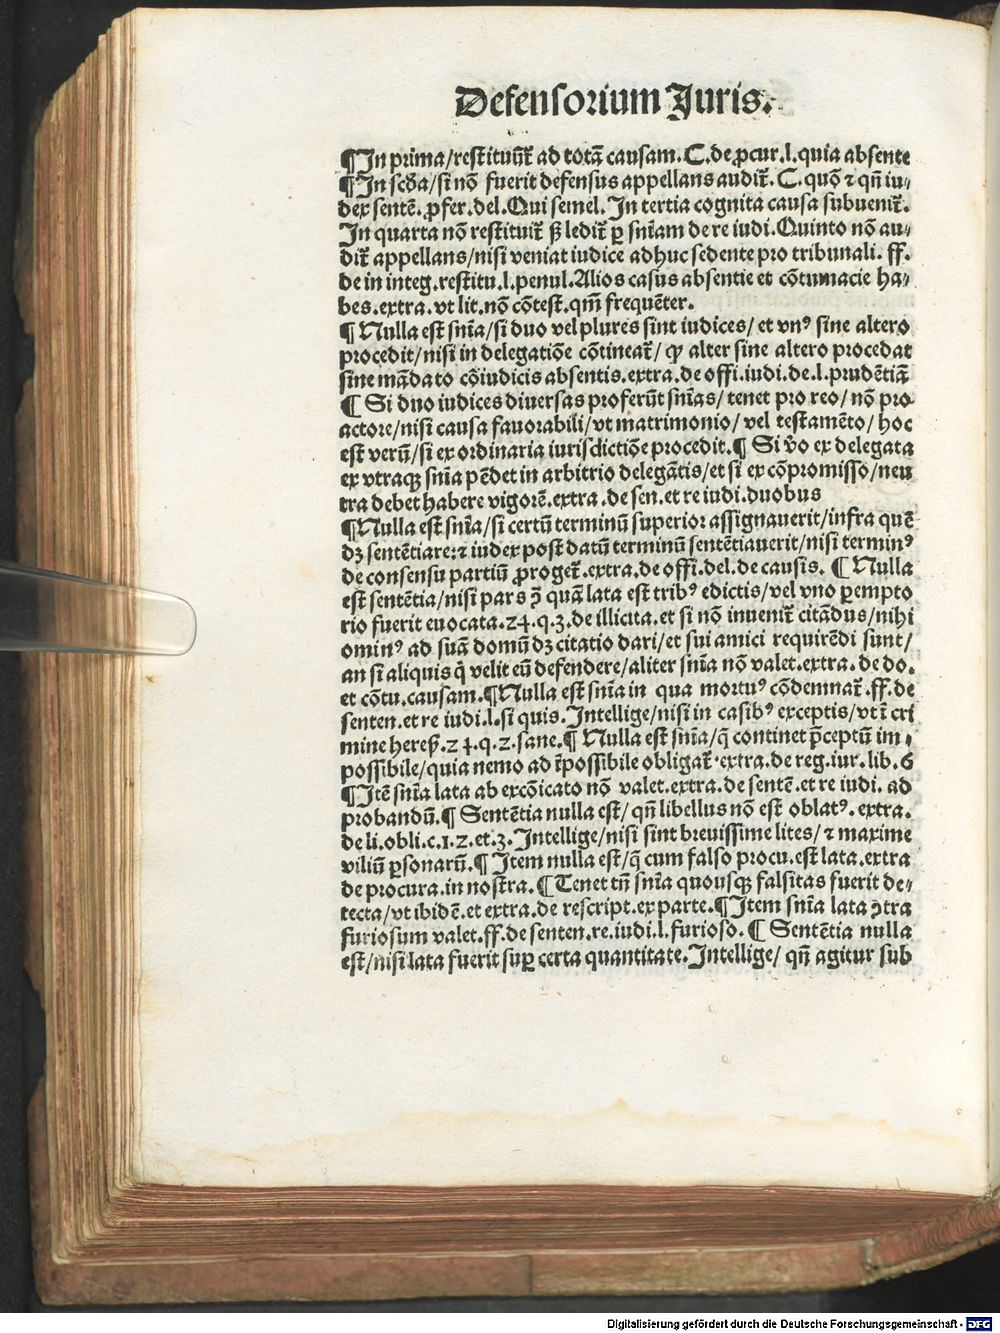 Defensorium Juris.
¶In prima/restituũt̃ ad totã causam.C.de ꝓcur.l.quia absente
¶In scḋa/si nõ fuerit defensus appellans audit̃. C. quõ ⁊ qñ iu-
dex sentẽ. ꝓfer.del.Qui semel. In tertia cognita causa subuenit̃.
In quarta nõ restituit̃ ẞ ledit̃ ꝑ sñiam de re iudi.Quinto nõ au-
dit̃ appellans/nisi veniat iudice adhuc sedente pro tribunali. ff.
de in integ.restitu.l.penul.Alios casus absentie et cõtumacie ha-
bes.extra.vt lit.nõ cõtest.qm̃ frequẽter.
¶ Nulla est sñia/si duo vel plures sint iudices/ et vnꝰ sine altero
procedit/nisi in delegatiõe cõtineat̃/ ꝙ alter sine altero procedat
sine mãdato cõiudicis absentis.extra.de offi.iudi.de.l.prudẽtiã
¶ Si duo iudices diuersas proferũt sñias/ tenet pro reo/ nõ pro
actore/nisi causa fauorabili/vt matrimonio/ vel testamẽto/ hoc
est verũ/si ex ordinaria iurisdictiõe procedit.¶ Si v̇o ex delegata
ex vtraqꝫ sñia pẽdet in arbitrio delegãtis/et si ex cõpromisso/neu
tra debet habere vigorẽ.extra .de sen.et re iudi.duobus
¶Nulla est sñia/si certũ terminũ superior assignauerit/infra quẽ
dꝫ sentẽtiare:⁊ iudex post datũ terminũ sentẽtiauerit/nisi terminꝰ
de consensu partiũ ꝓroget̃.extra.de offi.del.de causis. ¶ Nulla
est sentẽtia/nisi pars ꝯ̃ quã lata est tribꝰ edictis/vel vno ꝑempto
rio fuerit euocata.24.q.3.de illicita.et si nõ inuenit̃ citãdus/nihi
ominꝰ ad suã domũ dꝫ citatio dari/et sui amici requirẽdi sunt/
an si aliquis q̃ velit eũ defendere/aliter sñia nõ valet.extra. de do.
et cõtu.causam.¶Nulla est sñia in qua mortuꝰ cõdemnat̃.ff.de
senten.et re iudi.l.si quis.Intellige/nisi in casibꝰ exceptis/vt ĩ cri
mine hereẞ.24.q.2.sane.¶ Nulla est sñia/q̃ continet p̃ceptũ im-
possibile/quia nemo ad ĩpossibile obligat̃.extra.de reg.iur.lib.6
¶Itẽ sñia lata ab excõicato nõ valet.extra.de sentẽ.et re iudi. ad
probandũ.¶ Sentẽtia nulla est/ qñ libellus nõ est oblatꝰ. extra.
de li.obli.c.1.2.et.3.Intellige/nisi sint breuissime lites/ ⁊ maxime
viliũ ꝑsonarũ.¶ Item nulla est/q̃ cum falso procu.est lata.extra
de procura.in nostra.¶Tenet tñ sñia quousqꝫ falsitas fuerit de-
tecta/vt ibidẽ.et extra.de rescript.ex parte.¶Item sñia lata ꝯtra
furiosum valet.ff.de senten.re.iudi.l.furioso.¶ Sentẽtia nulla
est/nisi lata fuerit suꝑ certa quantitate.Intellige/ qñ agitur sub
Digitalisierung gefördert durch die Deutsche Forschungsgemeinschaft - DFG